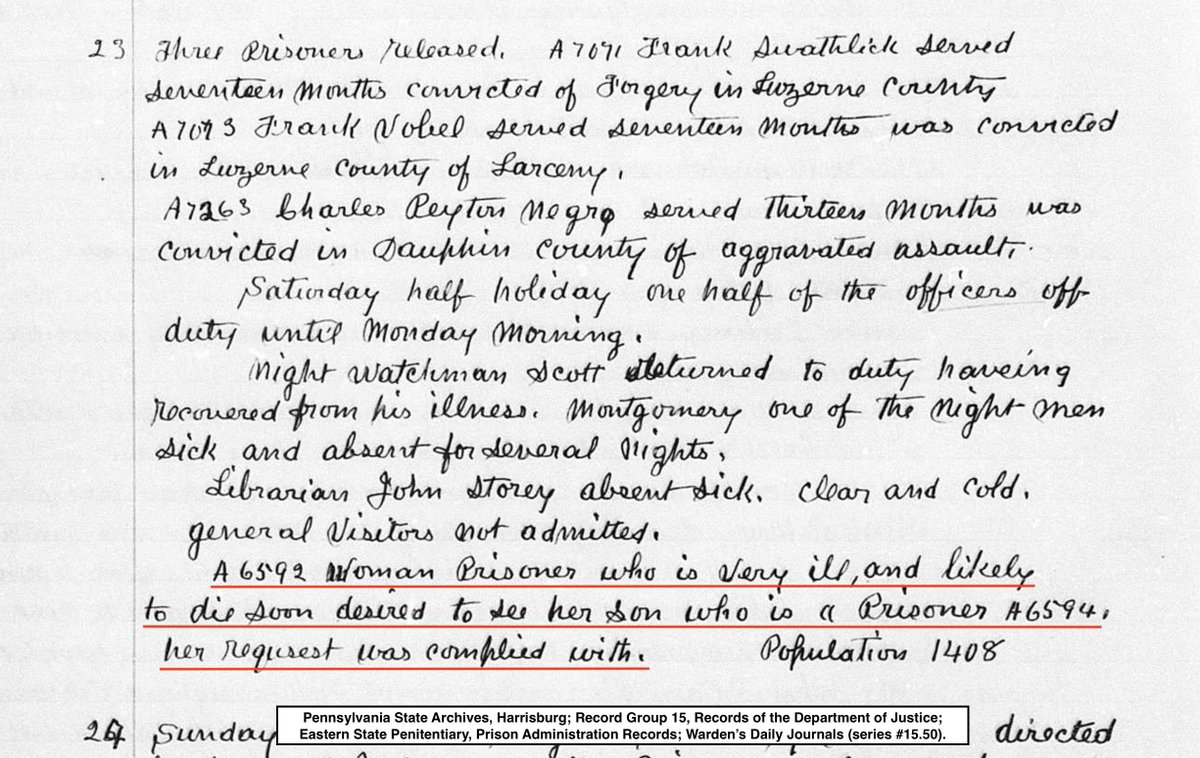 23 Three Prisoners released. A7071 Frank Swathlick served
seventeen Months convicted of Forgery in Luzerne County
A7073 Frank Vobel served seventeen Months was convicted
in Luzerne County of Larceny.
A7263 Charles Peyton Negro served Thirteen Months was
convicted in Dauphin County of aggravated assault.
Saturday half holiday one half of the officers off
duty until Monday Morning.
Night Watchman Scott returned to duty haveing
recovered from his illness. Montgomery one of the Night Men
sick and absent for several Nights.
Librarian John Storey absent sick. Clear and cold.
general Visitors not admitted.
A6592 Woman Prisoner who is very ill, and likely
to die soon desired to see her son who is a Prisoner A6594.
her requsest was complied with. Population 1408
24 Sunday directed
Pennsylvania State Archives, Harrisburg; Record Group 15, Records of the Department of Justice;
Eastern State Penitentiary, Prison Administration Records; Warden's Daily Journals (series #15.50).